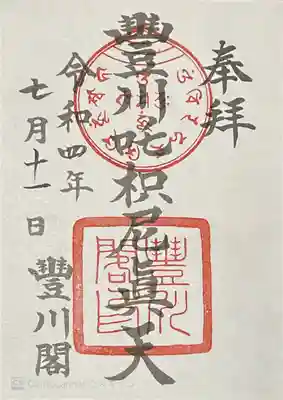 奉拝
豐川吒枳尼眞天
令和四年
七月十一日
豐川閣
豐川
閣印